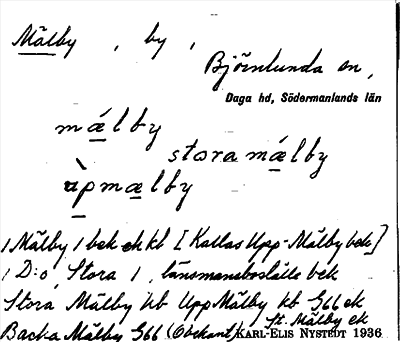 Mälby , by ,
Björnlunda sn,
Daga hd, Södermanlands län
mælby
stora mælby
ùpmælby
1 Mälby 1 bek ek kb [Kallas Upp-Mälby bek]
1 D:o, Stora 1, länsmansboställe bek
Stora Mälby kb Upp Mälby kb G66 ek
St. Mälby ek
Backa Mälby G66 (Obekant) KARL-ELIS NYSTEDT 1936